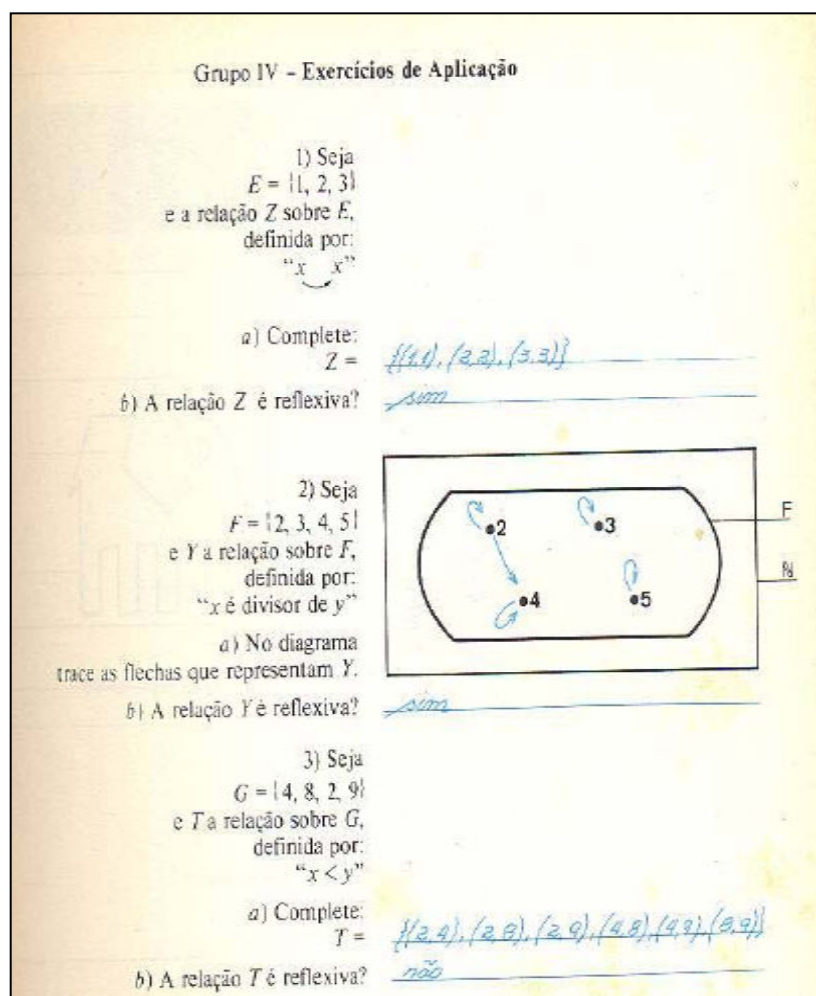 Grupo IV – Exercícios de Aplicação
1) Seja
E = {1, 2, 3}
e a relação Z sobre E,
definida por:
“x x”
a) Complete:
Z = {(1,1), (2,2), (3,3)}
b) A relação Z é reflexiva? sim
2) Seja
F = {2, 3, 4, 5}
e Y a relação sobre F,
definida por:
“x é divisor de y”
a) No diagrama
trace as flechas que representam Y.
2 3
4 5
F
N
b) A relação Y é reflexiva? sim
3) Seja
G = {4, 8, 2, 9}
e T a relação sobre G,
definida por:
“x < y”
a) Complete:
T = {(2,4), (2,8), (2,9), (4,8), (4,9), (8,9)}
b) A relação T é reflexiva? não